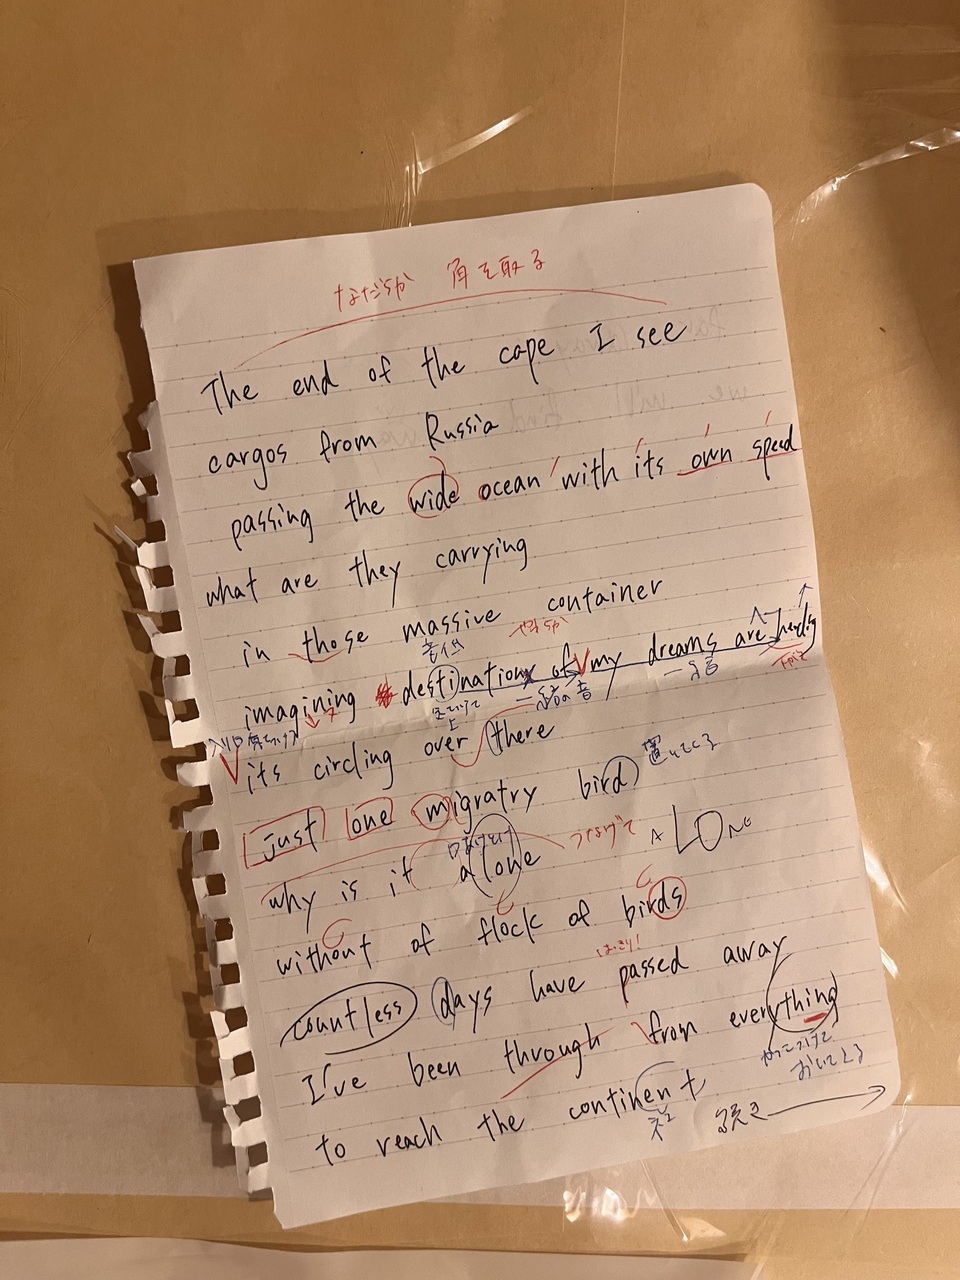 なだらか 角を取る
The end of the cape I see
cargos from Russia
passing the wide ocean with its own speed
what are they carrying
in those massive container
imagining destination of my dreams are heading
its circling over there
just one migratry bird 置いてくる
why is it alone つなげて A LONE
without of flock of birds
はっきり!
countless days have passed away
I've been through from everything
おいてくる
to reach the continent
続き